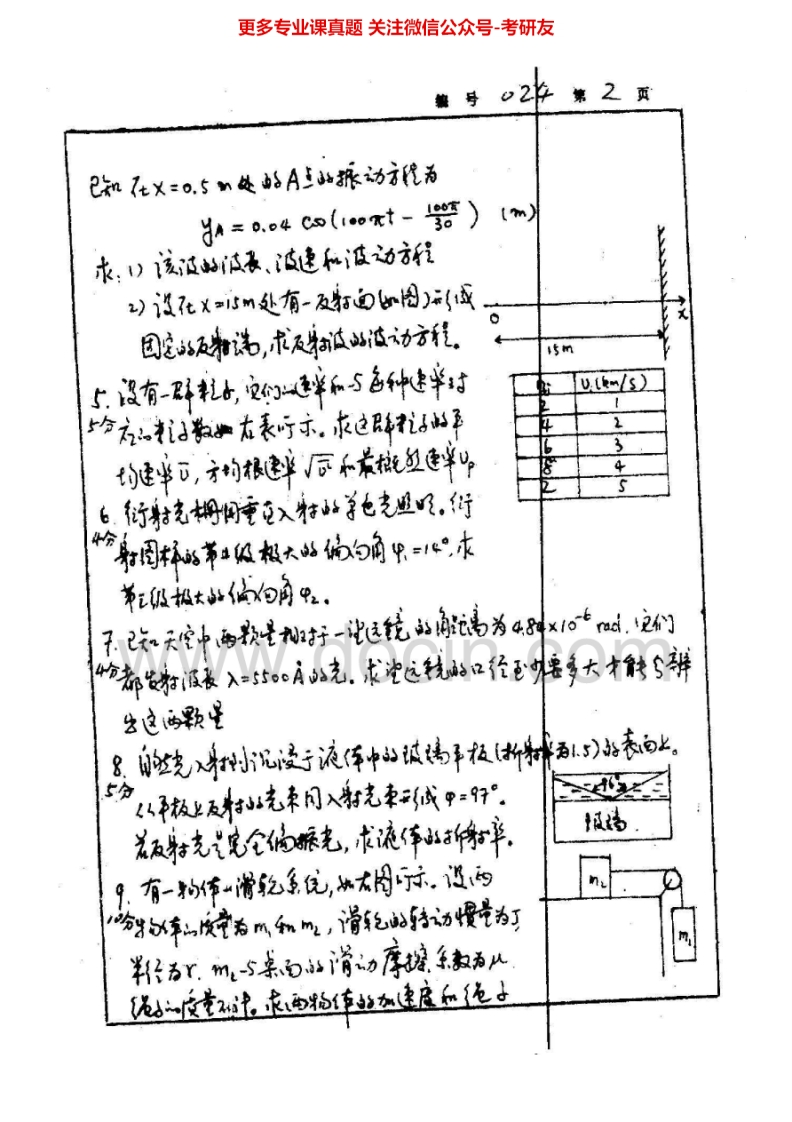 更多专业课真题 关注微信公众号-考研友
编号 024 第 2 页
已知在x=0.5m处的A点的振动方程为
yA = 0.04 cos(100πt - 100π/30) (m)
求:1) 该波的波长、波速和波动方程
2) 设在x=15m处有一反射面(如图)形成
固定的反射端,求反射波的波动方程。
0 x
15m
5. 设有一群粒子,它们的速率和与每种速率对
5分 应的粒子数如右表所示。求这群粒子的平
均速率
方均根速率
和最概然速率Up
Ui(km/s)
2 1
4 2
6 3
8 4
2 5
6. 衍射光栅用垂直入射的单色光照明。衍
4分 射图样的第
级极大的偏向角φ1=14°,求
第三级极大的偏向角φ2。
7. 已知天空中两颗星相对于一望远镜的角距离为4.84×10⁻⁶ rad,它们
4分 都发射波长λ=5500Å的光。求望远镜的口径至少要多大才能分辨
出这两颗星
www.docin.com
8. 自然光入射到沉浸于液体中的玻璃平板(折射率为1.5)的表面上。
5分 从平板上反射的光束同入射光束形成φ=97°。
若反射光是完全偏振光,求液体的折射率。
玻璃
9. 有一物体—滑轮系统,如右图所示。设两
10分 物体的质量为m1和m2,滑轮的转动惯量为J
半径为r. m2与桌面的滑动摩擦系数为μ
绳子的质量不计。求两物体的加速度和绳子
m2
m1